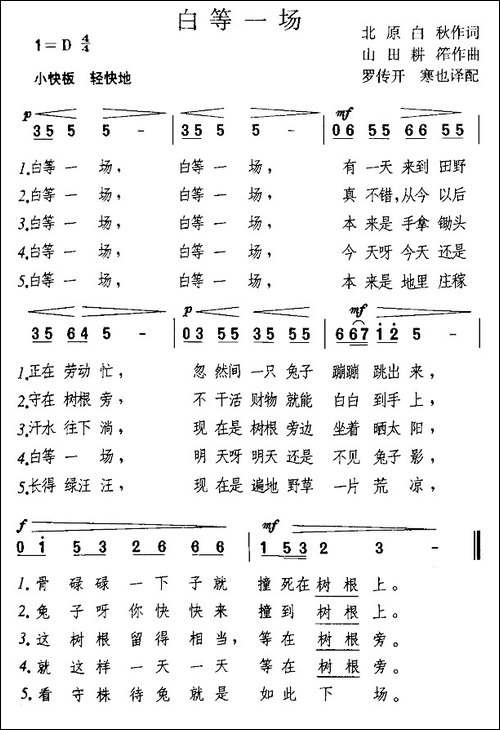 白等一场
北原白秋作词
1=D 4/4
山田耕筰作曲
小快板 轻快地
罗传开 寒也译配
p mf
3 5 5 5 - | 3 5 5 5 - | 0 6 5 5 6 6 5 5
1.白等一场， 白等一场， 有一天来到田野
2.白等一场， 白等一场， 真不错，从今以后
3.白等一场， 白等一场， 本来是手拿锄头
4.白等一场， 白等一场， 今天呀今天还是
5.白等一场， 白等一场， 本来是地里庄稼
mf p mf
3 5 6 4 5 - | 0 3 5 5 3 5 5 5 | 6 6 7 1 2 5 -
1.正在劳动忙， 忽然间一只兔子 蹦蹦跳出来，
2.守在树根旁， 不干活财物就能 白白到手上，
3.汗水往下淌， 现在是树根旁边 坐着晒太阳，
4.白等一场， 明天呀明天还是 不见兔子影，
5.长得绿汪汪， 现在是遍地野草 一片荒凉，
f mf
0 1 5 3 2 6 6 6 | 1 5 3 2 3 - ‖
1.骨碌碌一下子就 撞死在树根上。
2.兔子呀你快快来 撞到树根上。
3.这树根留得相当，等在树根旁。
4.就这样一天一天 等在树根旁。
5.看守株待兔就是 如此下场。